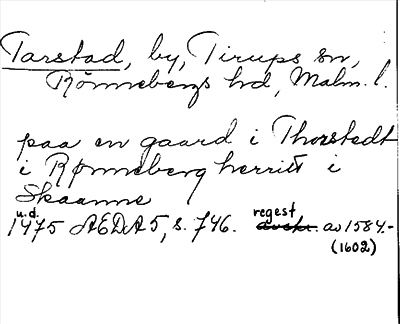 Tarstad, by, Tirups sn,
Rönnebergs hd, Malm. l.
paa en gaard i Thorstedt
i Rønneberg herrit i
Skaanne
u.d.
1475 ÆDA 5, s. 746. regest av 1584.-
(1602)